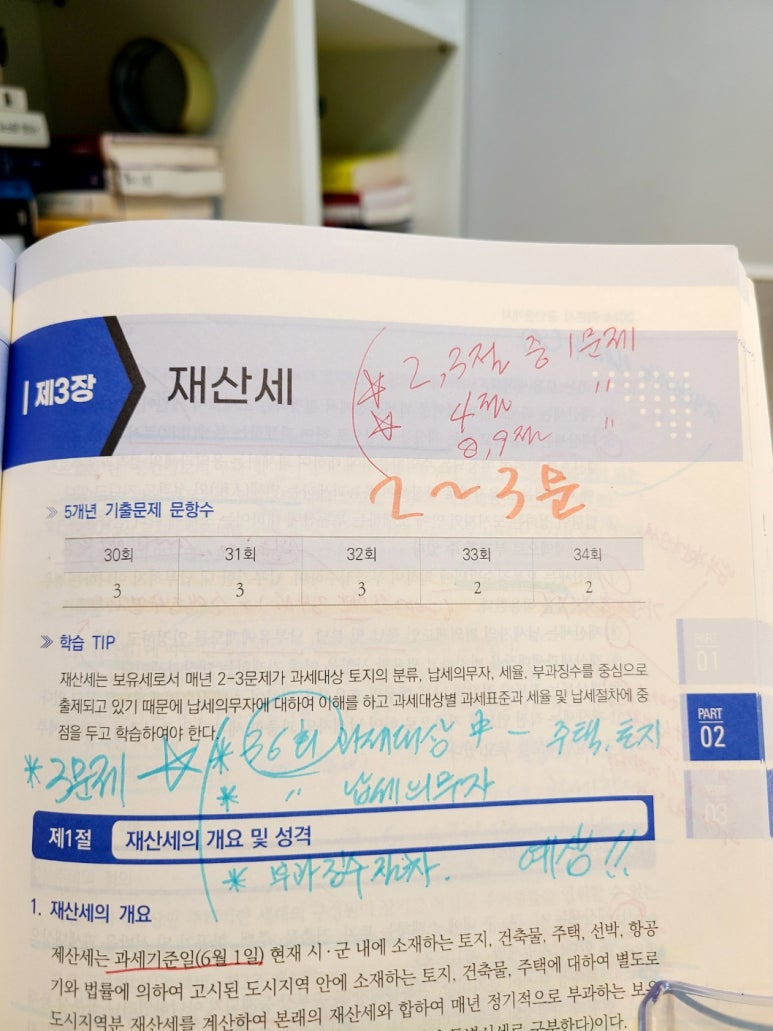 제3장 재산세
* 2,3절 중 1문제
* 4절 "
8,9절 "
2~3문
» 5개년 기출문제 문항수
30회 31회 32회 33회 34회
3 3 3 2 2
» 학습 TIP
재산세는 보유세로서 매년 2-3문제가 과세대상 토지의 분류, 납세의무자, 세율, 부과징수를 중심으로
출제되고 있기 때문에 납세의무자에 대하여 이해를 하고 과세대상별 과세표준과 세율 및 납세절차에 중
점을 두고 학습하여야 한다.
PART
01
PART
02
03
* 3문제
* 36회 과세대상 * - 주택, 토지
* " 납세의무자
제1절 재산세의 개요 및 성격
* 부과징수절차. 예상!!
1. 재산세의 개요
재산세는 과세기준일(6월 1일) 현재 시·군 내에 소재하는 토지, 건축물, 주택, 선박, 항공
기와 법률에 의하여 고시된 도시지역 안에 소재하는 토지, 건축물, 주택에 대하여 별도로
도시지역분 재산세를 계산하여 본래의 재산세와 합하여 매년 정기적으로 부과하는 보유
구분한다)이다.